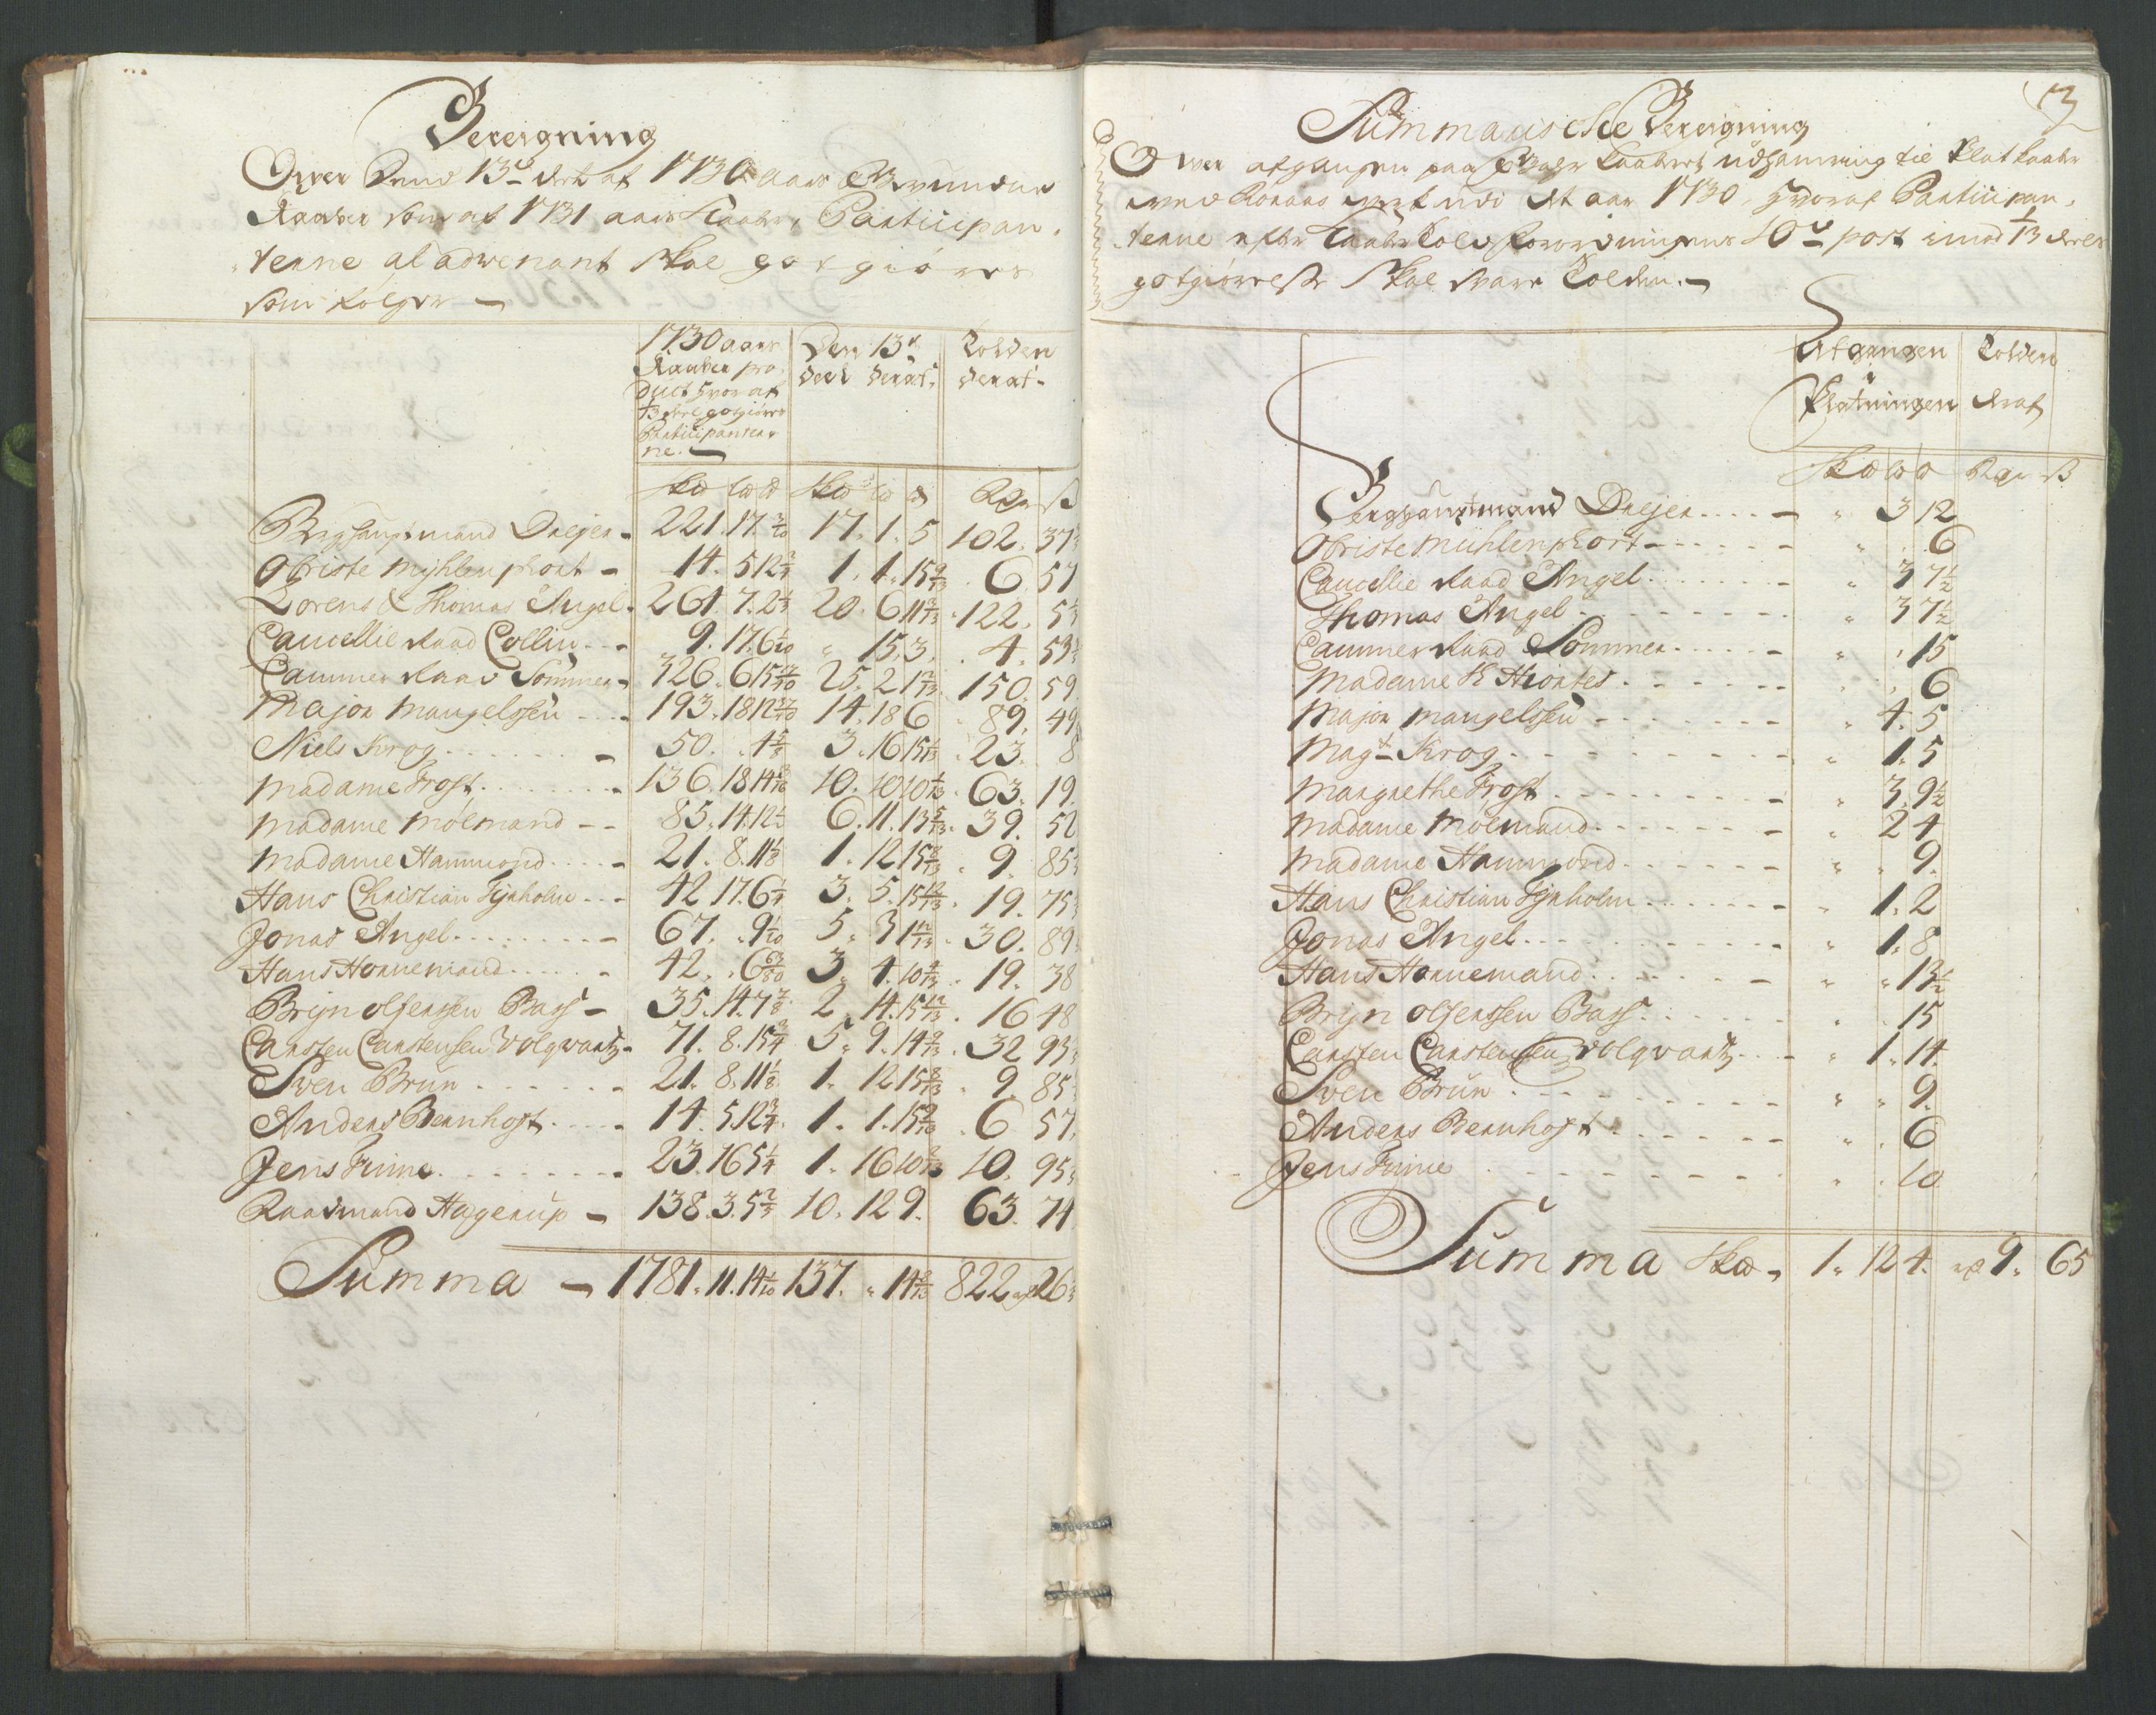 Bereigning
Over Dend 13de deel af 1730 aars Brendene
Kaaber som af 1731 aars Kaaber, Participan-
terne al advenant skal godtgiöres
som følger —
1730 aars
Kaaber pro-
duct hvor af
1/13 deel godtgiöres
Participanter-
ne. —
Den 13de
deel deraf.
Tolden
deraf.
Sk℔ L℔ ℔ Sk℔ L℔ ℔ Rdr ß
Berghauptmand Dreyer – 221. 17. 17. 1. 5 102. 37
Obriste Mühlenphort – 14. 5 12 1. 1. 15 6. 57
Lorens & Thomas Angel. 261. 7. 2 20. 6 11 122. 5
Cancellie Raad Collin 9. 17. 6 " 15. 3. 4. 53
Cammer Raad Sommer 326. 6 15 25. 2 1 150. 59
Major Mangelssen 193. 18 12 14. 18 6 89. 49
Niels Krog 50. . 4 3. 16 15 23. 8
Madame Frost 136. 18 14 10. 10 10 63. 19.
Madame Mölmand 85. 14. 12 6. 11. 13 5/13 39. 52
Madame Hammond 21. 8. 11 1. 12 15 8/13 9. 85
Hans Christian Fejnholm 42 17. 6 3. 5. 15 12/13 19. 75
Jonas Angel 67. . 9 5. 3 1 12/13 30. 89
Hans Hornemand 42. . 6 3. 4. 10 19. 38
Brijn Olfenssen Bass – 35. 14. 7 2. 14. 15 12/13 16 48
Carsten Carstensen Volqvartz – 71. 8. 15 5. 9. 14 9/13 32 93
Sven Brün 21. 8. 11 1/8 1. 12 15 8/13 9. 85
Anders Bernhoft 14. 5. 12 1. 1. 15 6 57
Jens Friine 23. 16 5 1/4 1. 16 10 10. 95
Raadmand Hagerup – 138. 3. 5 10. 12 9. 63. 74
Summa – 1781. 11. 14 137. " 14 822 26
3
Summariske Bereigning
Over afgangen paa Kaabers udhamring til Plat Kaaber
ved Röraas Verk udi et aar 1730, hvoraf Participan-
terne efter Kaaber Told forordningens 10de post imod 1/13 deels
godtgiörelse skal svare Tolden. —
Afgangen
i
Platningen
Tolden
deraf
Sk℔ L℔ ℔ Rdr ß
Berghauptmand Dreyer – " 3 12
Obriste Mühlenphort – " . 6
Cancellie Raad Angel " 3 7 1/2
Thomas Angel " 3 7 1/2
Cammer Raad Sommer " . 15
Madame Hiortes . . 6
Major Mangelssen " 4. 5
Magt Krog " 1. 5
Margrethe Frost " 3. 9 1/2
Madame Mölmand " 2 4
Madame Hammond " . 9.
Hans Christian Fejnholm " 1. 2
Jonas Angel " 1. 8
Hans Hornemand " " 13 1/2
Brijn Olfenssen Bass " . 15
Carsten Carstensen Volqvartz " 1. 14.
Sven Brün " " 9.
Anders Bernhoft " . 6
Jens Friine " . 10
Summa Sk℔ 1. 12 4. 9. 65